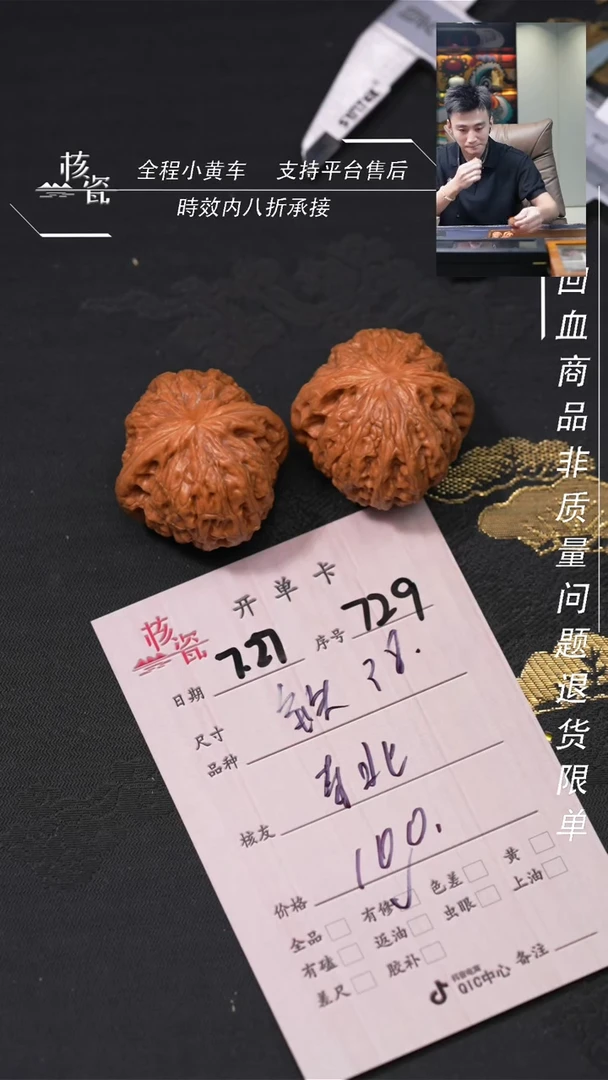 核瓷
全程小黄车 支持平台售后
時效内八折承接
回血商品非质量问题退货限单
开单卡
核瓷
日期 7.27 序号 729
尺寸 38.
品种
核友
100.
价格
全品 有修 色差 黄
有磕 返油 虫眼 上油
差尺 胶补
抖音电商
QIC中心 备注